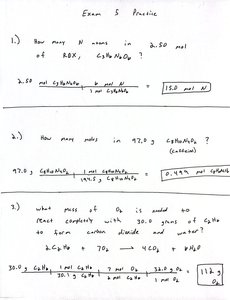 Exam 5 Practice
1.) How many N atoms in 2.50 mol
of RDX, C3H6N6O6 ?
2.50 mol C3H6N6O6 6 mol N = 15.0 mol N
1 mol C3H6N6O6
2.) How many moles in 97.0 g C8H10N4O2 ?
(caffeine)
97.0 g C8H10N4O2 1 mol C8H10N4O2 = 0.499 mol C8H10N4O2
194.5 g C8H10N4O2
3.) What mass of O2 is needed to
react completely with 30.0 grams of C2H6
to form carbon dioxide and water?
2 C2H6 + 7 O2 → 4 CO2 + 6 H2O
30.0 g C2H6 1 mol C2H6 7 mol O2 32.0 g O2 = 112 g O2
30.1 g C2H6 2 mol C2H6 1 mol O2